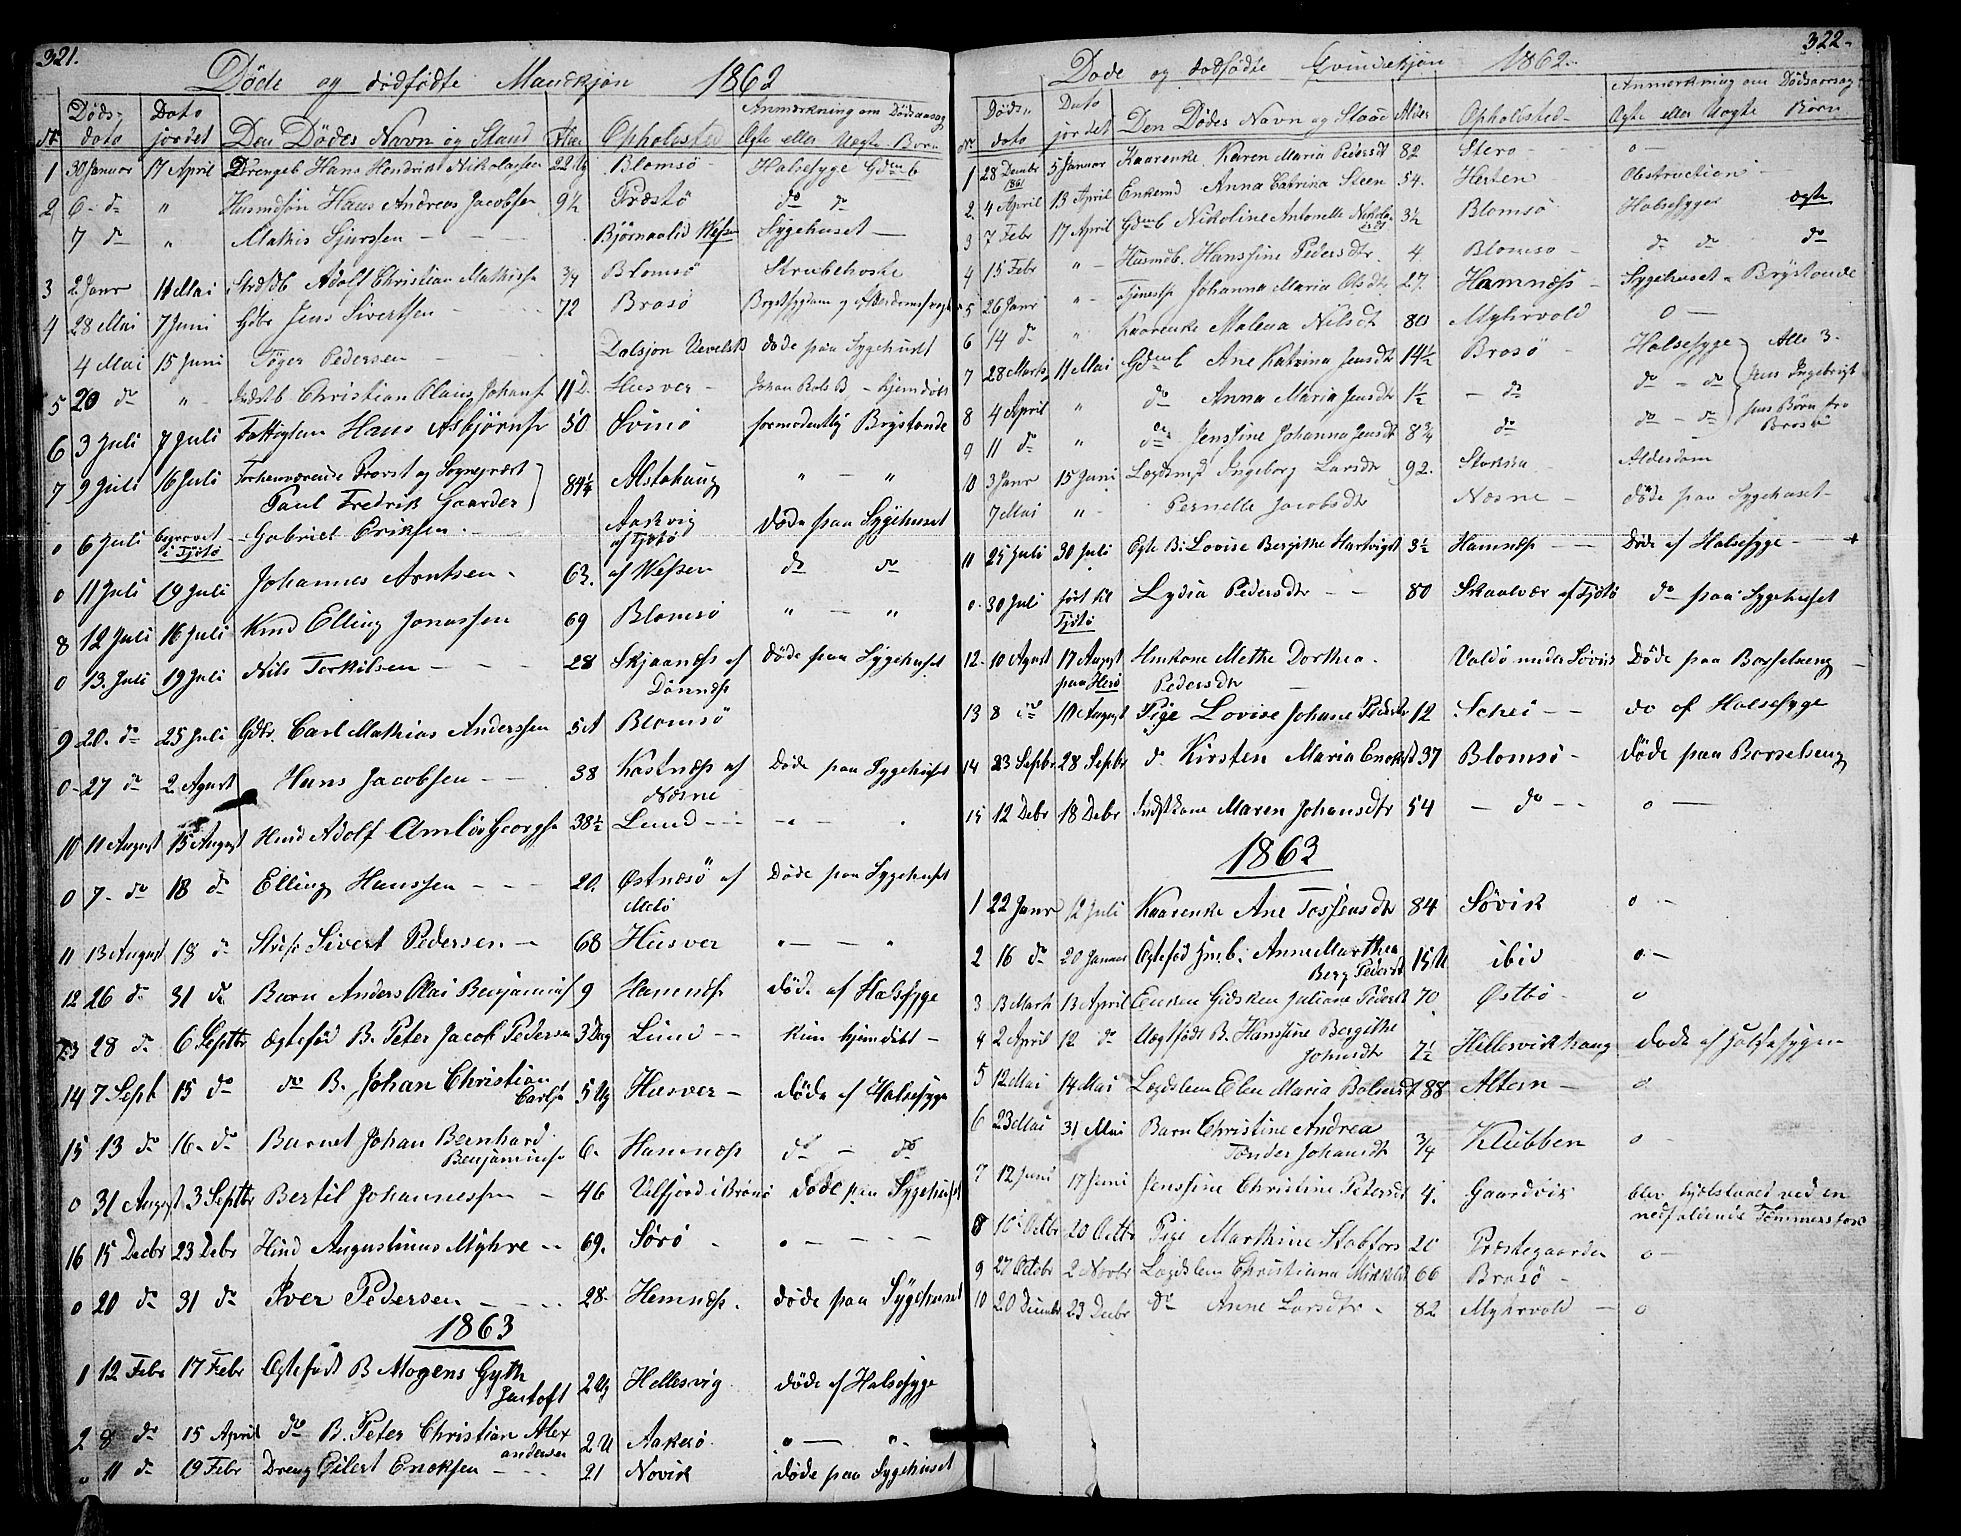 321.
Döde og dödfödte Mandkjön 1862
Döds- Dato Anmærkning om Dödsaarsag
No dato jordet Den Dödes Navn og Stand Alder Opholdsted Ægte eller Uægte Börn
1 30 Januar 17 April Drengeb Hans Hendrik Nikolaisen 22 Ug Blomsö Halsesyge Gdmb
2 6 - do " Husmdsön Hans Andreas Jacobsen 9½ Præstö do do
7 do " Mathis Sjurssen - Björnaalid Wefsen Sygehuset -
3 2 Janr 11 Mai Adolf Christian Mathiss 3/4 Blomsö Strubehoste
4 28 Mai 7 Juni Gdbr Jens Sivertsen 72 Brasö
4 Mai 15 Juni Töger Pedersen - döde paa Sygehuset
5 20 do " Christian Olaus Johans 11 D. Husver - Johan Rols B - hjemdöbt
6 3 Juli 7 Juli Fattiglem Hans Asbjörns 50 Svinö formodentlig Brystonde
7 9 Juli 16 Juli Forhenværende Provst og Sognepræst
Paul Fredrik Gaarder 84¼ Alstahaug " - "
0 6 Juli begravet i Tjötö Gabriel Eriksen - Aakvig af Tjötö Döde paa Sygehuset
0 11 Juli 19 Juli Johannes Arntsen - 63. af Wefsen do do
8 12 Juli 16 Juli Kmd Elling Jonassen 69 Blomsö " - "
0 13. Juli 19 Juli Nils Torkilsen - - - 28 Skjaanes af Dönnæs döde paa Sygehuset
9 20. do 25 Juli Gdbr. Carl Mathias Anderssen 5 A Blomsö
0 - 27 do 2 August Hans Jacobsen - - 38 Kastnæs af Næsne Döde paa Sygehuset
10 11 August 15 August Hmd Adolf Amlöv Georgs 38½ Lund - -
0 7 - do 18 do Elling Hanssen - - - 20. Östnesö af Melö Döde paa Sygehuset
11 13 August 18 do Sivert Pedersen - 68 Husver " - - "
12 26 do 31 do Barn Anders Olai Benjamins 9 Hamnæs död af Halsesyge
13 28 do 6 Septbr Ægtefød B. Peter Jacob Pedersen 3 Dag Lund - - kun hjemdöbt -
14 7 Sept 15 do do B. Johan Christian Carls 5 Ug Husver - döde af Halsesyge
15 13 do 16 - do Barnet Johan Bernhard Benjamins 6. Hamnæs do - do
0 31 August 3 Septbr Bertil Johannessen - 46 Velfjord i Brönö Döde paa Sygehuset
16 15 Decbr 23 Debr Hmd Augustinus Myhre - - 69. Sörö - " - - -
0 20 do 31 do Iver Pedersen - - - 28 - Hemnæs - döde paa Sygehuset
1863
1 12 Febr 17 Febr Ægtefödt B Mogens Gyth Jastoft 2 Ug Hellesvig - döde af Halsesyge
2 8 do 15 April do B. Peter Christian Alexandersen 2 U Aakerö - " - "
0 11 do 19 Febr Dreng Eilert Enoksen - - - 21 Növik döde paa Sygehuset
322.
Döde og dödfödte Qvindekjön 1862.
Döds- Dato Anmærkning om Dödsaarsag
No dato jordet Den Dödes Navn og Stand Alder Opholdsted - Ægte eller Uægte Börn
1 28 Decmbr 1861 5 Januar Kaarenke Karen Maria Pedersdt 82 Stero - 0 -
2. 4 April 13 April Enkemd Anna Catrina Steen 54. Hesten Obstruction
3 7 Febr 17 April Gdmb Nicholine Antonette Nikolaisdt 3½ Blomsö Halsesyge ægte
4 15 Febr " - Husmdb. Hanssine Pedersdtr. 4 Blomsö - do do do
5 26 Janr " - Tjenestp Johanna Maria Olsdt 27. Hamnæs - Sygehuset - Brystonde
6 14 do " Kaarenke Malena Nilsdt 80 Myhrvold 0 -
7 28 Marts 11 Mai Gdmb Ane Katrina Jensdt 14½ Brasö Halsesyge Alle 3 -
8 4 April " do Anna Maria Jensdt 1½ - do do - do Jens Ingebrigt-
9 11 do " do Jenssine Johanna Jensdt 8¾ do do - do sens Börn fra Brasö
10 3 Janr 15 Juni Ingeborg Larsdtr 92. Stokka - Alderdom
7 Mai " - Pernelle Jacobsdtr Næsne - döde paa Sygehuset -
11 25 Juli 30 Juli Egte B. Lovise Bergitte Hartvigsd 3½ Hamnæs - - Döde af Halsesyge -
0. 30 Juli fört til Tjötö Lydia Pedersdtr - - 80 Skaalvær af Tjötö do paa Sygehuset
12. 10 August 17 August paa Herö Hmkone Methe Dorthea Pedersdtr Valdö under Sövig Döde paa Barselseng -
13 8 do 10 August Pige Lovise Johane Pedersdtr 12 Schei - - do af Halsesyge
14 23 Septbr 28 Septbr do Kirsten Maria Enoksd 37 Blomsö - döde paa Barselseng
15 12 Debr 18 Debr Indstkone Maren Johansdtr 54 - do - - 0 -
1863
1 22 Janr 12 Juli Kaarenke Ane Tossensdtr 84 Sövik 0 -
2 16 do 20 Januar Ægtefød Hmb. Anne Marthea Berg Pedersd 15 U ibid 0 -
3 13 Marts 13 April Enken Gidsken Juliane Pedersd 70 Östbö - 0
4 2 April 12 do Uægtfödt B. Hanssine Bergitte Johnsdtr 7½ Hellesvik haug döde af Halsesygen
5 12 Mai 14 Mai Lægdslem Elen Maria 88 Altern - 0
6 23 Mai 31 Mai Barn Christine Andrea Tønder Johansdt 3/4 Klubben 0 -
7 12 Juni 17 Juni Jenssine Christine Petersd 4. Gaardvik blev ihjelslaaet ved en nedfaldende Tömmerstok
8 10 Octbr 20 Octbr Pige Marthine Stabfors 20 Præstegaarden 0 -
9 27 Octobr 2 Novbr Lægdslem Christiana 66 Brasö -
10 20 Decmbr 23 Decbr do Anne Larsdtr - 82 Myhrvold - 0